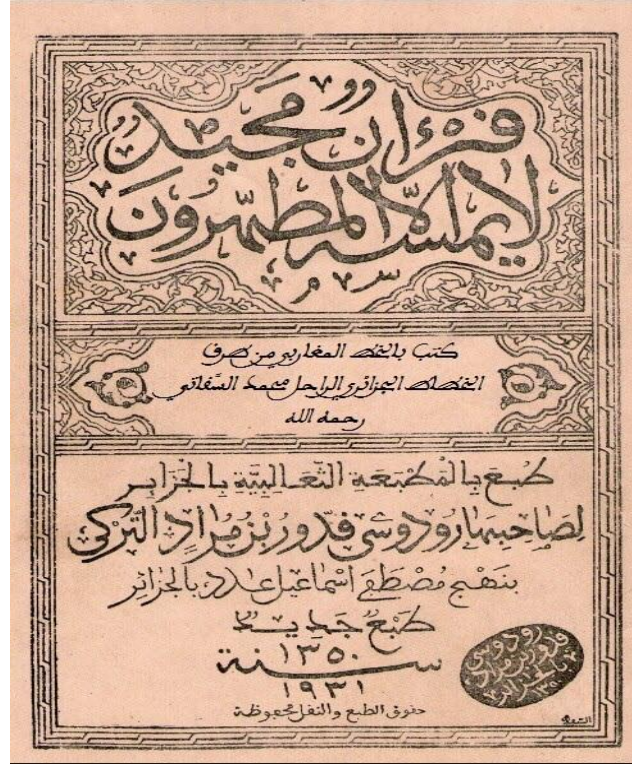 فرءان مجيد
لا يمسه إلا المطهرون
كتب بالخط المغاربي من طرف
الخطاط الجزائري الراحل محمد السفاتي
رحمه الله
طبع بالمطبعة الثعالبية بالجزاير
لصاحبها رودوسي فدور بن مراد التركي
بنهج مصطفى اسماعيل عدد بالجزائر
طبع جديد
١٣٥٠
سنة
١٩٣١
حقوق الطبع والنقل محفوظة
رودوسي
فدور بن مراد